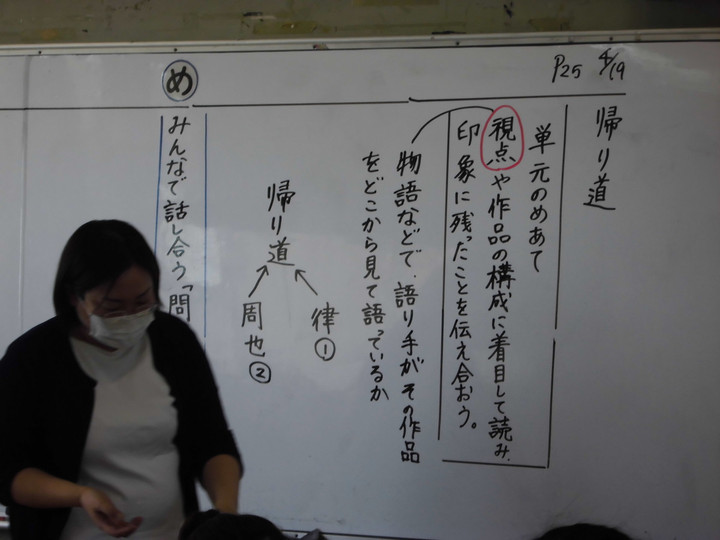 4/19
P25
帰り道
単元のめあて
視点や作品の構成に着目して読み、
印象に残ったことを伝え合おう。
物語などで、語り手がその作品
をどこから見て語っているか
律①
帰り道
周也②
め
みんなで話し合う「問